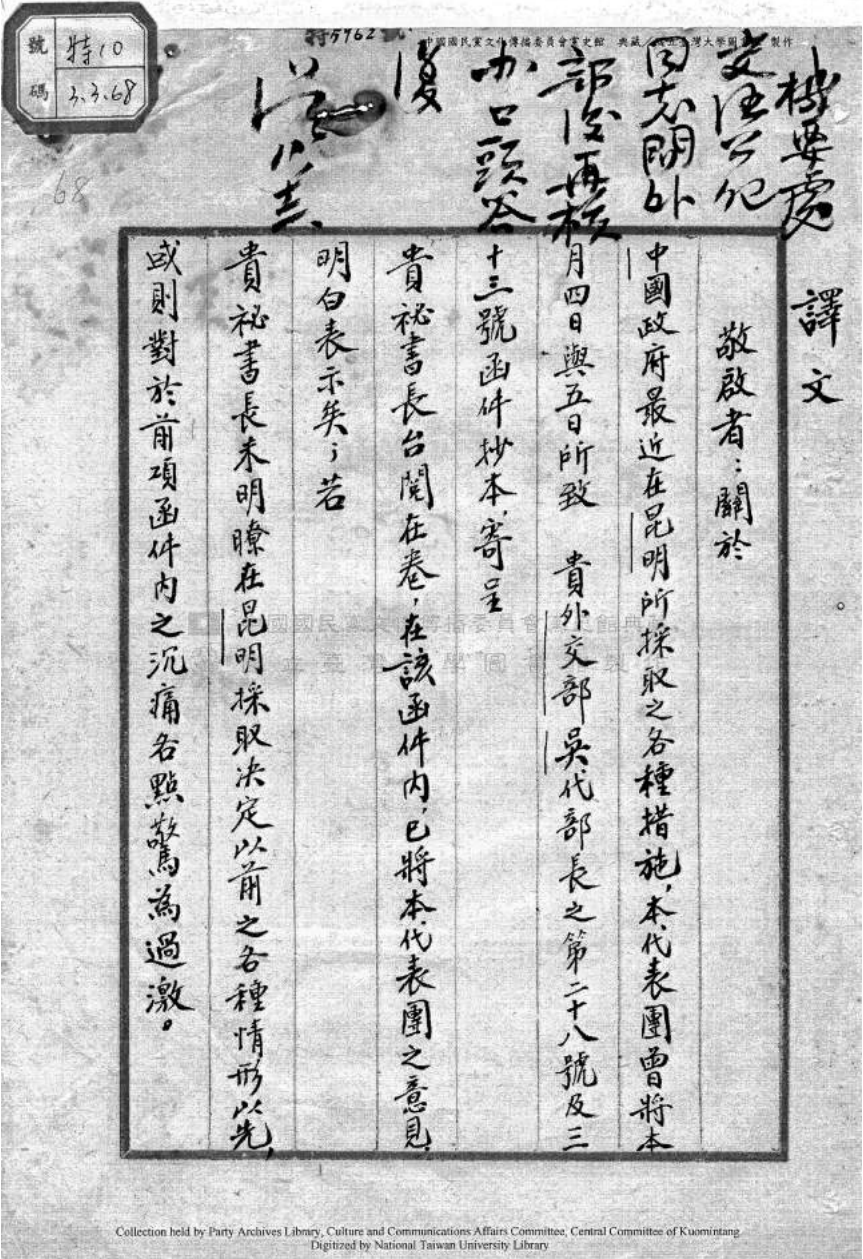 號碼
特10
3.3.68
特5962
中國國民黨文化傳播委員會黨史館 典藏
製作
68
機要處
交汪公紀
同志問外
部後再核
办口頭答
復
譯文
敬啟者：關於
中國政府最近在昆明所採取之各種措施，本代表團曾將本
月四日與五日所致 貴外交部吳代部長之第二十八號及三
十三號函件抄本，寄呈
貴祕書長台閱在卷，在該函件內，已將本代表團之意見，
明白表示矣；若
貴祕書長未明瞭在昆明採取決定以前之各種情形以先，
或則對於前項函件內之沉痛各點驚為過激。
Collection held by Party Archives Library, Culture and Communications Affairs Committee, Central Committee of Kuomintang
Digitized by National Taiwan University Library